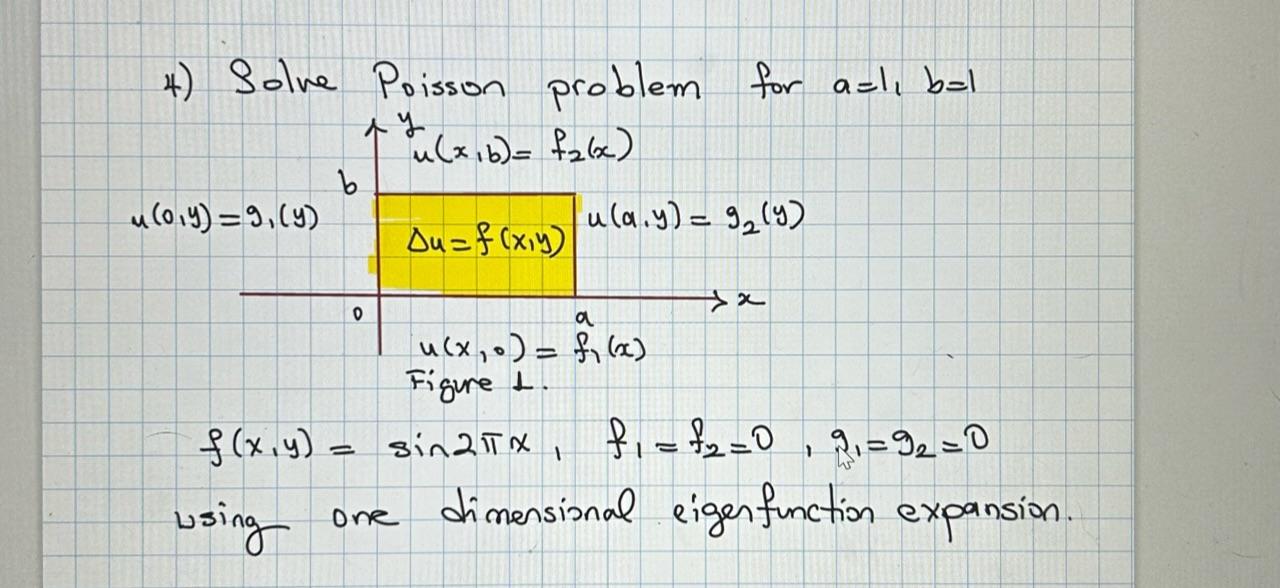 4) Solve Poisson problem for a=1, b=1
y
u(x,b)= f₂(x)
b
u(0,y)=g₁(y)
Δu=f(x,y)
u(a,y)= g₂(y)
x
0
a
u(x,0)= f₁(x)
Figure 1.
f(x,y) = sin2πx, f₁=f₂=0, g₁=g₂=0
using one dimensional eigenfunction expansion.